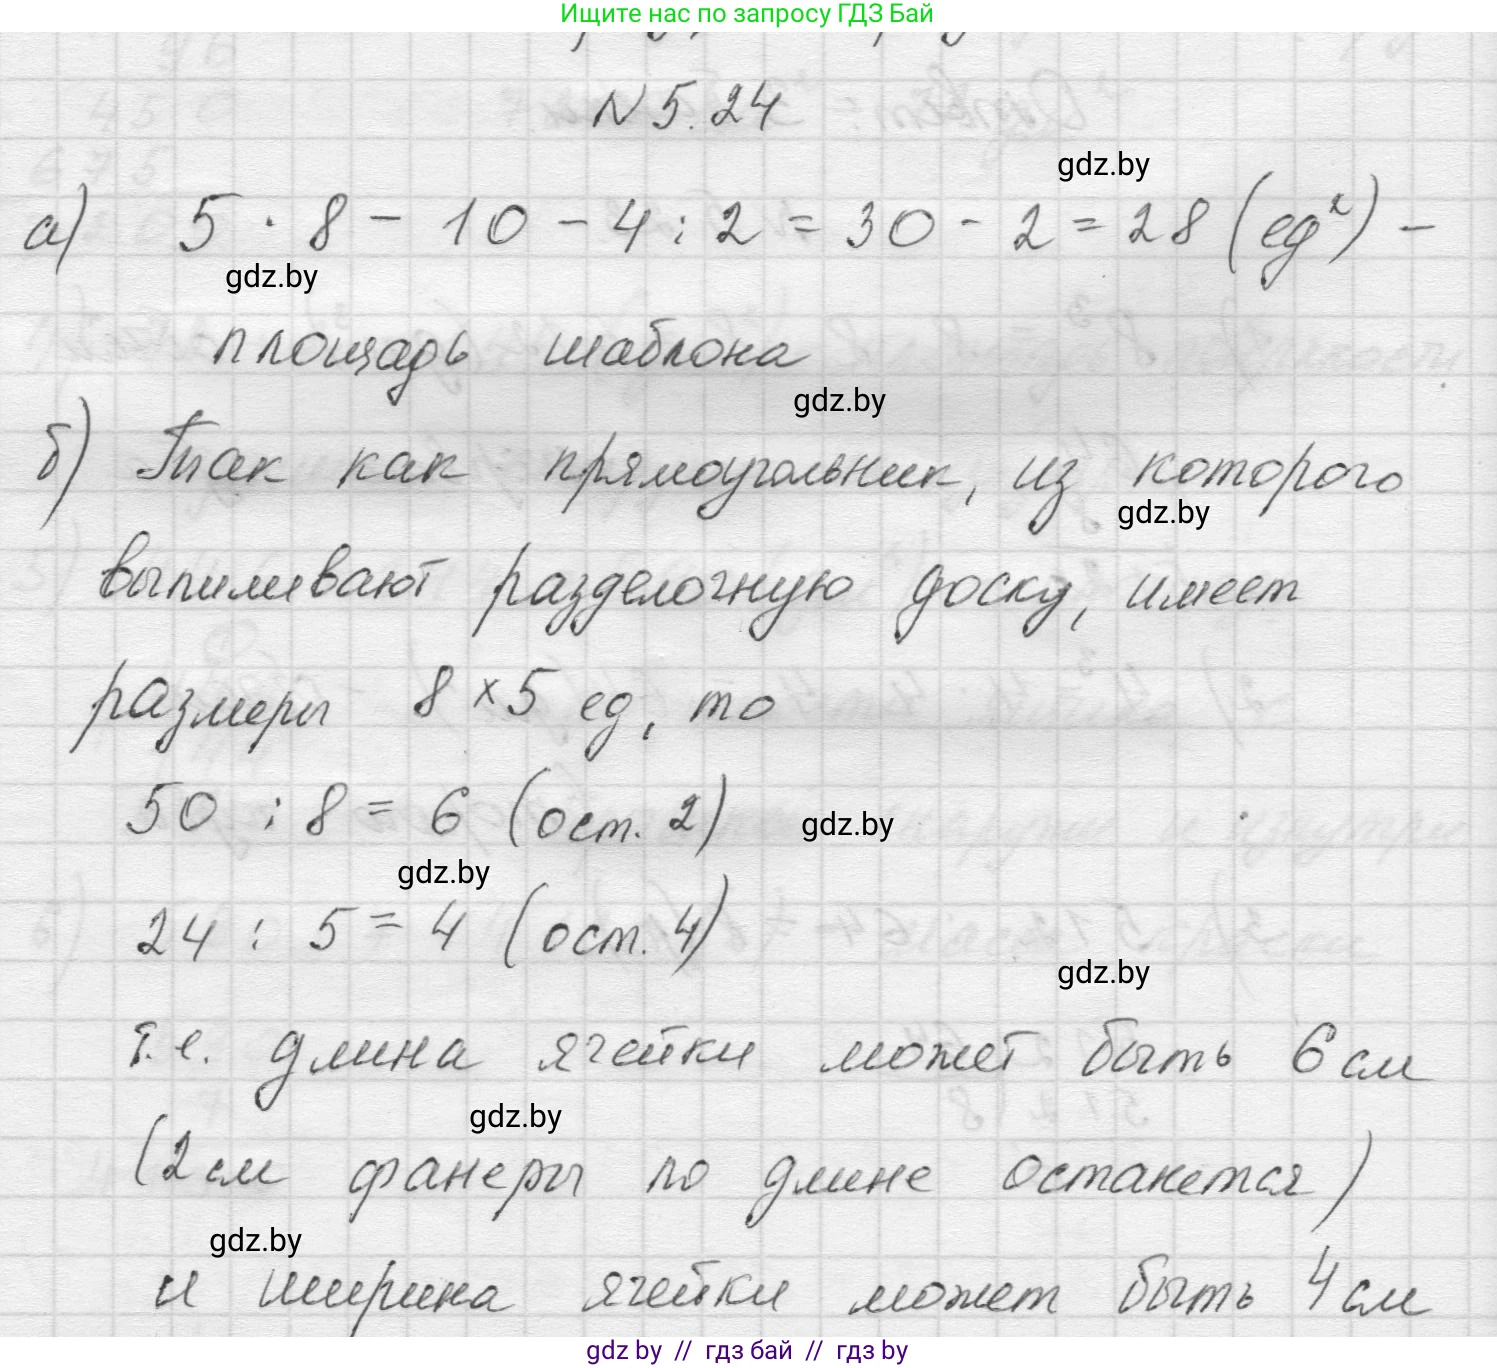 Ищите нас по запросу ГДЗ Бай
N 5.24
gdz.by
а) 5 · 8 - 10 - 4 : 2 = 30 - 2 = 28 (ед²) -
gdz.by
площадь шаблона
gdz.by
б) Так как прямоугольник, из которого
gdz.by
выпиливают разделочную доску, имеет
размеры 8 × 5 ед, то
50 : 8 = 6 (ост. 2)
gdz.by
gdz.by
24 : 5 = 4 (ост. 4)
gdz.by
т.е. длина ячейки может быть 6 см
gdz.by
(2 см фанеры по длине останется)
gdz.by
и ширина ячейки может быть 4 см
gdz.by // гдз бай // гдз by